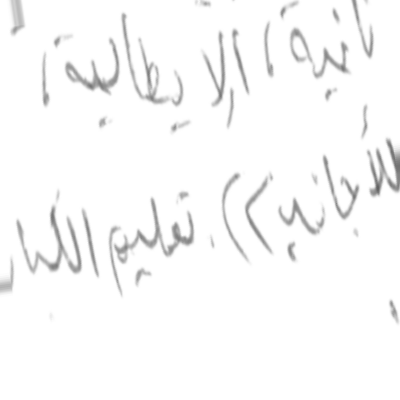 انية، الإيطالية،
للأجانب (٢). تعليم الكبار